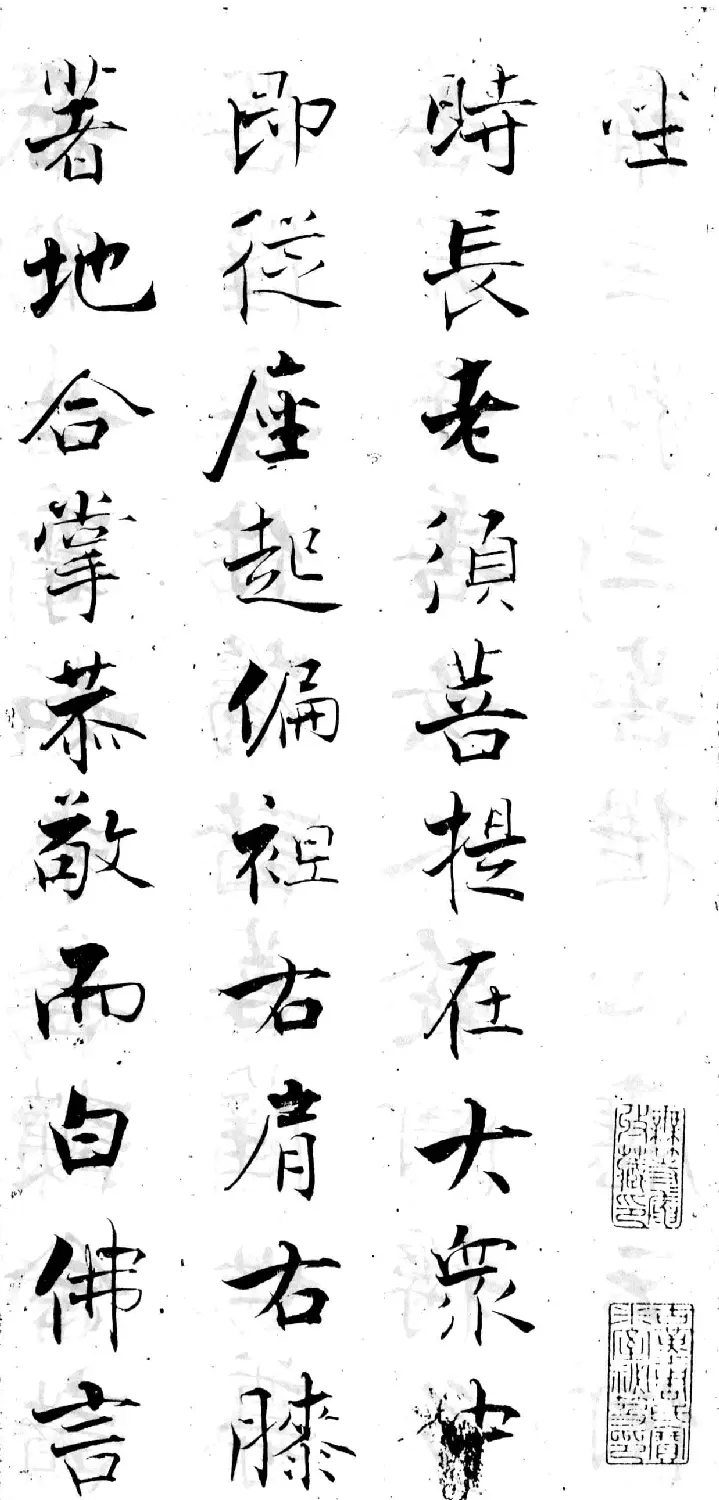 坐
時長老須菩提在大衆中
即從座起偏袒右肩右膝
著地合掌恭敬而白佛言